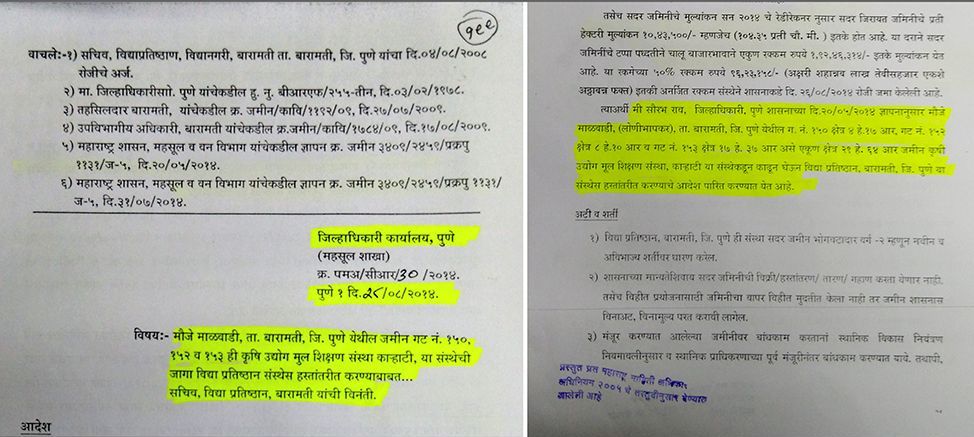 १८८
वाचले:-१) सचिव, विद्याप्रतिष्ठाण, विद्यानगरी, बारामती ता. बारामती, जि. पुणे यांचा दि.०४/०८/२००८
रोजीचे अर्ज.
२) मा. जिल्हाधिकारीसाो. पुणे यांचेकडील हु. नु. बीआरएफ/२५५-तीन, दि.०३/०२/१९७८.
३) तहसिलदार बारामती, यांचेकडील क्र. जमीन/कावि/११९२/०९, दि.२७/०७/२००९.
४) उपविभागीय अधिकारी, बारामती यांचेकडील क्र.जमीन/कावि/१७८४/०९, दि.१७/०८/२००९.
५) महाराष्ट्र शासन, महसूल व वन विभाग यांचेकडील ज्ञापन क्र. जमीन ३४०९/२४५९/प्रक्रपु
११३१/ज-५, दि.२०/०५/२०१४.
६) महाराष्ट्र शासन, महसूल व वन विभाग यांचेकडील ज्ञापन क्र. जमीन ३४०९/२४५९/प्रक्रपु ११३१/
ज-५, दि.३१/०७/२०१४.
जिल्हाधिकारी कार्यालय, पुणे
(महसूल शाखा)
क्र. पमअ/सीआर/30 /२०१४.
पुणे १ दि.२८/०८/२०१४.
विषय:- मौजे माळवाडी, ता. बारामती, जि. पुणे येथील जमीन गट नं. १५०,
१५२ व १५३ ही कृषि उद्योग मुल शिक्षण संस्था काऱ्हाटी, या संस्थेची
जागा विद्या प्रतिष्ठान संस्थेस हस्तांतरीत करण्याबाबत...
सचिव, विद्या प्रतिष्ठान, बारामती यांची विनंती.
आदेश
तसेच सदर जमिनीचे मुल्यांकन सन २०१४ चे रेडीरेकनर नुसार सदर जिरायत जमिनीचे प्रती
हेक्टरी मुल्यांकन १०,४३,५००/- म्हणजेच (१०४.३५ प्रती चौ. मी. ) इतके होत आहे. या दराने सदर
जमिनीचे टप्पा पध्दतीने चालू बाजारभावाने एकुण रक्कम रुपये १,९२,४६,३१४/- इतके मुल्यांकन येत
आहे. या रकमेच्या ५०% रक्कम रुपये ९६,२३,१५८/- (अक्षरी शहान्नव लाख तेवीसहजार एकशे
अठ्ठावन्न फक्त) इतकी अनर्जित रक्कम संस्थेने शासनाकडे दि. २६/०८/२०१४ रोजी जमा केलेली आहे.
त्याअर्थी मी सौरभ राव, जिल्हाधिकारी, पुणे शासनाच्या दि.२०/०५/२०१४ ज्ञापनानुसार मौजे
माळवाडी, (लोणीभापकर), ता. बारामती, जि. पुणे येथील ग. नं. १५० क्षेत्र ४ हे.१७ आर, गट नं. १५२
क्षेत्र ८ हे.१० आर व गट नं. १५३ क्षेत्र १७ हे. ३७ आर असे एकुण क्षेत्र २९ हे. ६४ आर जमीन कृषी
उद्योग मूल शिक्षण संस्था, काऱ्हाटी या संस्थेकडून काढून घेऊन विद्या प्रतिष्ठान, बारामती, जि. पुणे या
संस्थेस हस्तांतरीत करण्याचे आदेश पारित करण्यात येत आहे.
अटी व शर्ती
१) विद्या प्रतिष्ठान, बारामती, जि. पुणे ही संस्था सदर जमीन भोगवटादार वर्ग -२ म्हणून नवीन व
अविभाज्य शर्तीवर धारण करेल.
२) शासनाच्या मान्यतेशिवाय सदर जमिनीची विक्री/हस्तांतरण/ तारण/ गहाण करता येणार नाही.
तसेच विहीत प्रयोजनासाठी जमिनीचा वापर विहीत मुदतीत केला नाही तर जमीन शासनास
विनाअट, विनामुल्य परत करावी लागेल.
३) मंजूर करण्यात आलेल्या जमीनीवर बांधकाम करतानां स्थानिक विकास नियंत्रण
नियमावलीनुसार व स्थानिक प्राधिकरणाच्या पूर्व मंजूरीनंतर बांधकाम करण्यात यावे. तथापी,
प्रस्तुत प्रत महाराष्ट्र माहिती अधिकार
अधिनियम २००५ चे तरतुदीनुसार देण्यात
आलेली आहे